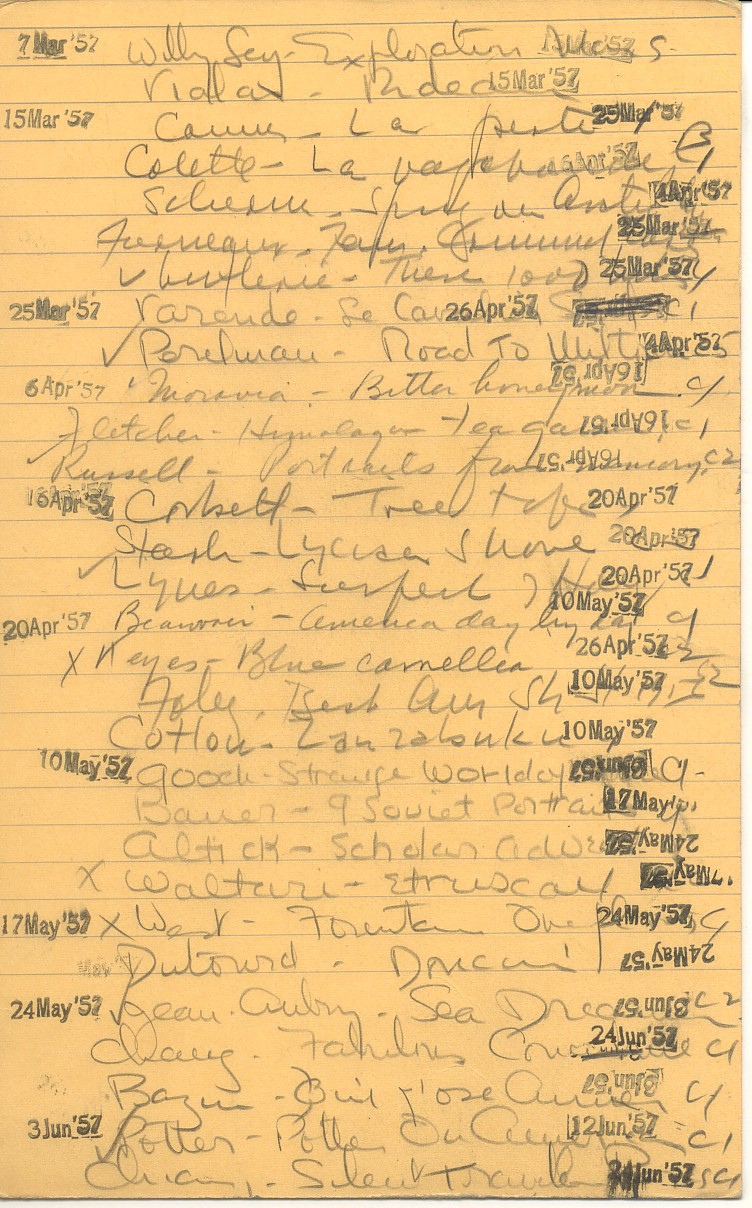 7 Mar '57 Willy Ley - Exploration Mars
15 Mar '57
15 Mar '57 Camus - La peste 25 Mar '57
Colette - La vagabonde 16 Apr '57
Spring on 4 Apr '57
Furneaux - 25 Mar '57
✓ Guthrie - These 1000 25 Mar '57
25 Mar '57 Varende - Le 26 Apr '57 C1
✓ Perelman - Road to 4 Apr '57
6 Apr '57 Moravia - Bitter honeymoon 16 Apr '57 C1
Fletcher - Himalayan Tea 16 Apr '57 C1
✓ Russell - Portraits from memory 16 Apr '57 C2
16 Apr '57 Corbett - Tree tops 20 Apr '57
Stark - Lycian Shore 20 Apr '57
✓ Lynes - Surfeit of 20 Apr '57
20 Apr '57 Beauvoir - America day by day 10 May '57 C1
X Keyes - Blue camellia 26 Apr '57
Foley - Best Am Sh St 10 May '57 C2
Cotlow - Zanzabuku 10 May '57
10 May '57 Gooch - Strange World 3 Jun '57 C1
Bauer - 9 Soviet Portraits 17 May '57
Altick - Scholar Adven 24 May '57
X Waltari - Etruscan 17 May '57
17 May '57 X West - Fountain Over 24 May '57 C1
Dutourd - 24 May '57
24 May '57 ✓ Jean-Aubry - Sea Dreamer 3 Jun '57 C2
Chang - Fabulous Concubine 24 Jun '57 C1
Bazin - 3 Jun '57 C1
3 Jun '57 ✓ Potter - Potter On America 12 Jun '57 C1
Chiang - Silent Traveller 24 Jun '57 C1